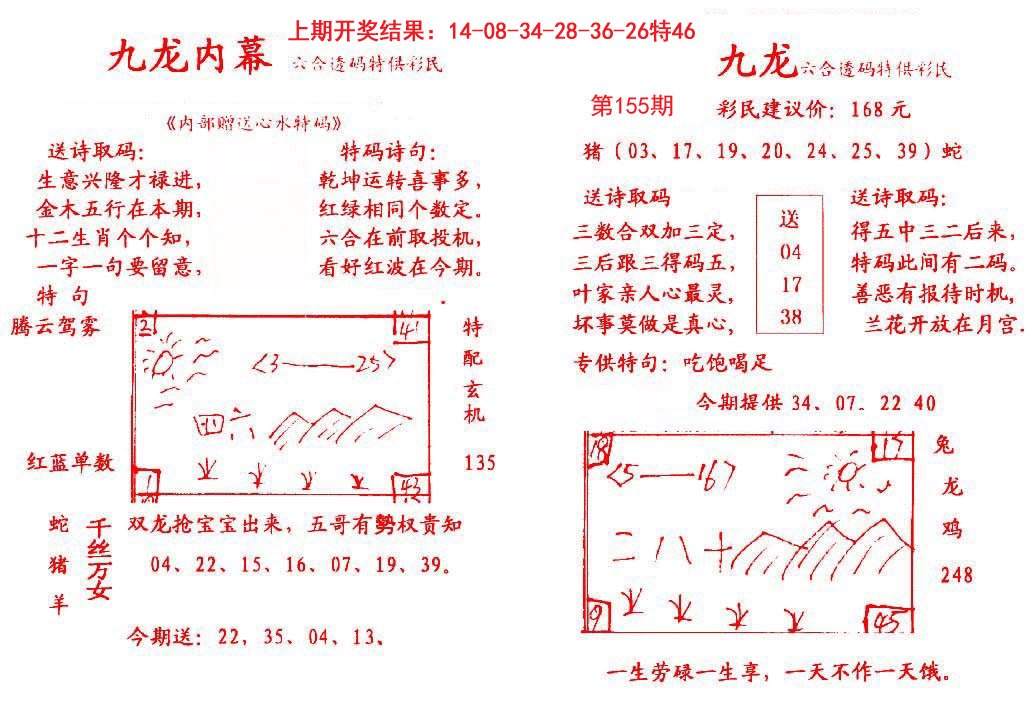 上期开奖结果：14-08-34-28-36-26特46
九龙内幕 六合透码特供彩民
《内部赠送心水特码》
送诗取码：
生意兴隆才禄进，
金木五行在本期，
十二生肖个个知，
一字一句要留意，
特码诗句：
乾坤运转喜事多，
红绿相同个数定。
六合在前取投机，
看好红波在今期。
特 句
腾云驾雾
红蓝单数
2 41
<3——25>
四六
1 43
特配玄机
135
蛇猪羊
千丝万女
双龙抢宝宝出来，五哥有勢权贵知
04、22、15、16、07、19、39。
今期送：22，35、04、13、
九龙 六合透码特供彩民
第155期 彩民建议价：168 元
猪（03、17、19、20、24、25、39）蛇
送诗取码
三数合双加三定，
三后跟三得码五，
叶家亲人心最灵，
坏事莫做是真心，
送
04
17
38
送诗取码：
得五中三二后来，
特码此间有二码。
善恶有报待时机，
兰花开放在月宫.
专供特句：吃饱喝足
今期提供 34、07、22 40
18 17
<5——16>
二八十
9 45
兔龙鸡
248
一生劳碌一生享，一天不作一天饿。